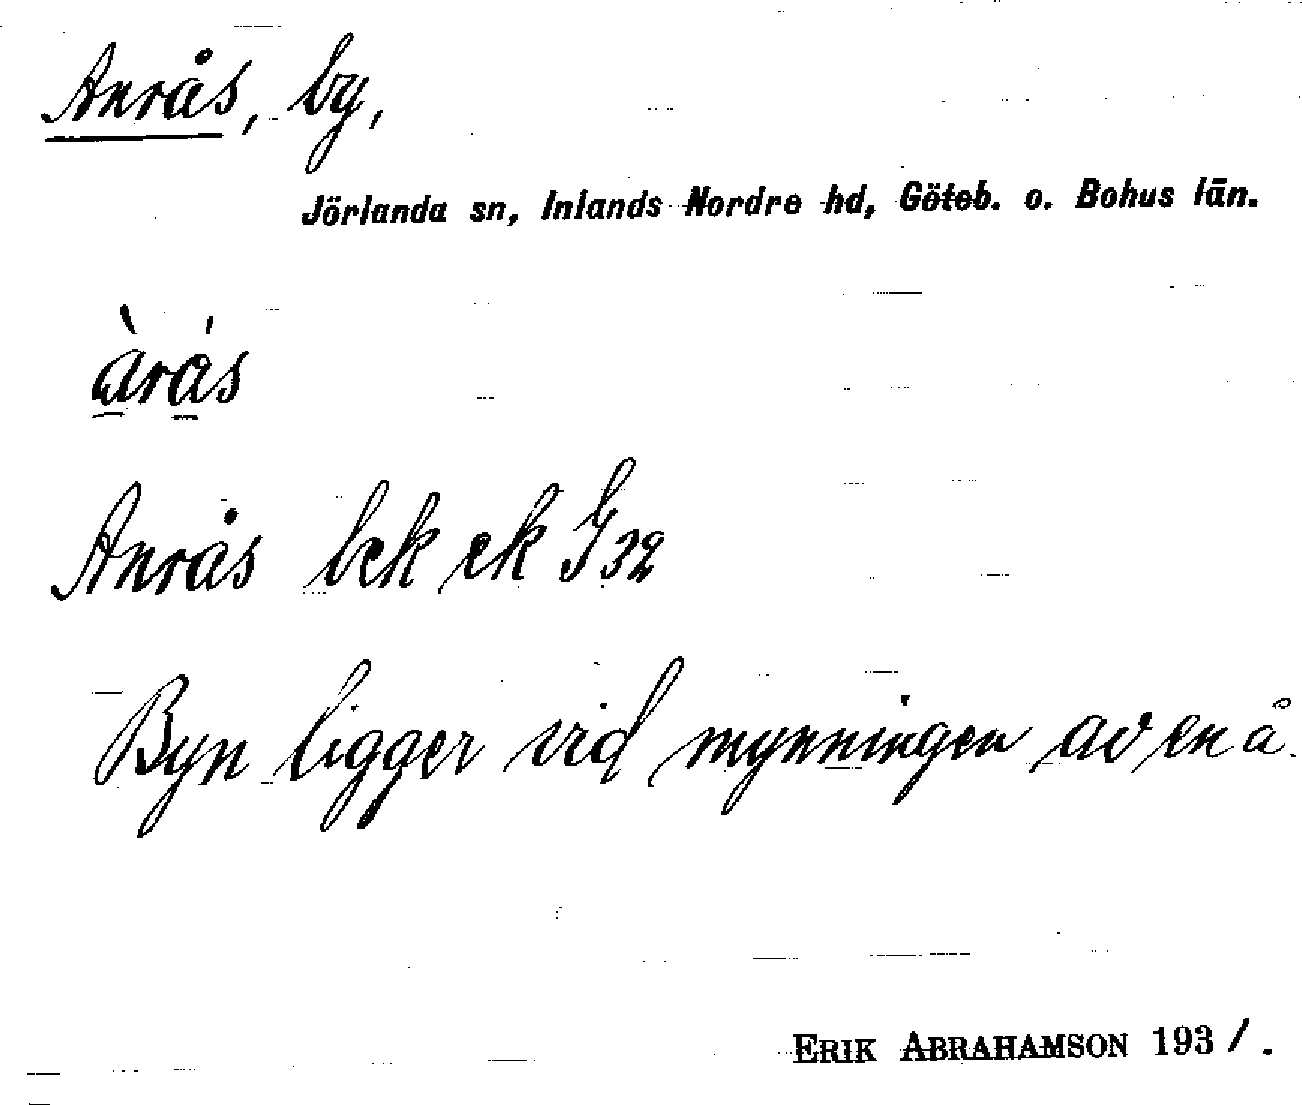 Anrås, by,
Jörlanda sn, Inlands Nordre hd, Göteb. o. Bohus län.
à̱rá̱s
Anrås bek ek G 32
Byn ligger vid mynningen av en å.
ERIK ABRAHAMSON 1931.